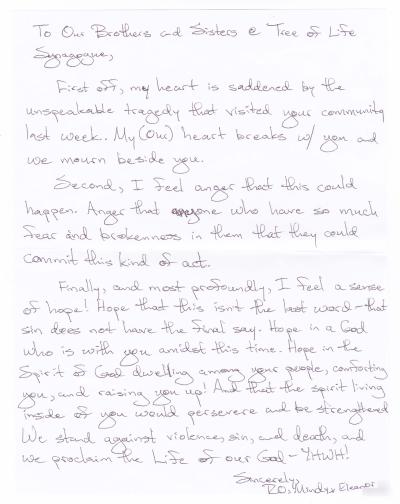 To Our Brothers and Sisters @ Tree of Life
Synagogue,
First off, my heart is saddened by the
unspeakable tragedy that visited your community
last week. My (Our) heart breaks w/ you and
we mourn beside you.
Second, I feel anger that this could
happen. Anger that anyone who have so much
fear and brokenness in them that they could
commit this kind of act.
Finally, and most profoundly, I feel a sense
of hope! Hope that this isn't the last word - that
sin does not have the final say. Hope in a God
who is with you amidst this time. Hope in the
Spirit of God dwelling among your people, comforting
you, and raising you up! And that the spirit living
inside of you would persevere and be strengthened
We stand against violence, sin, and death, and
we proclaim the Life of our God - YHWH!
Sincerely,
Mindy & Eleanor